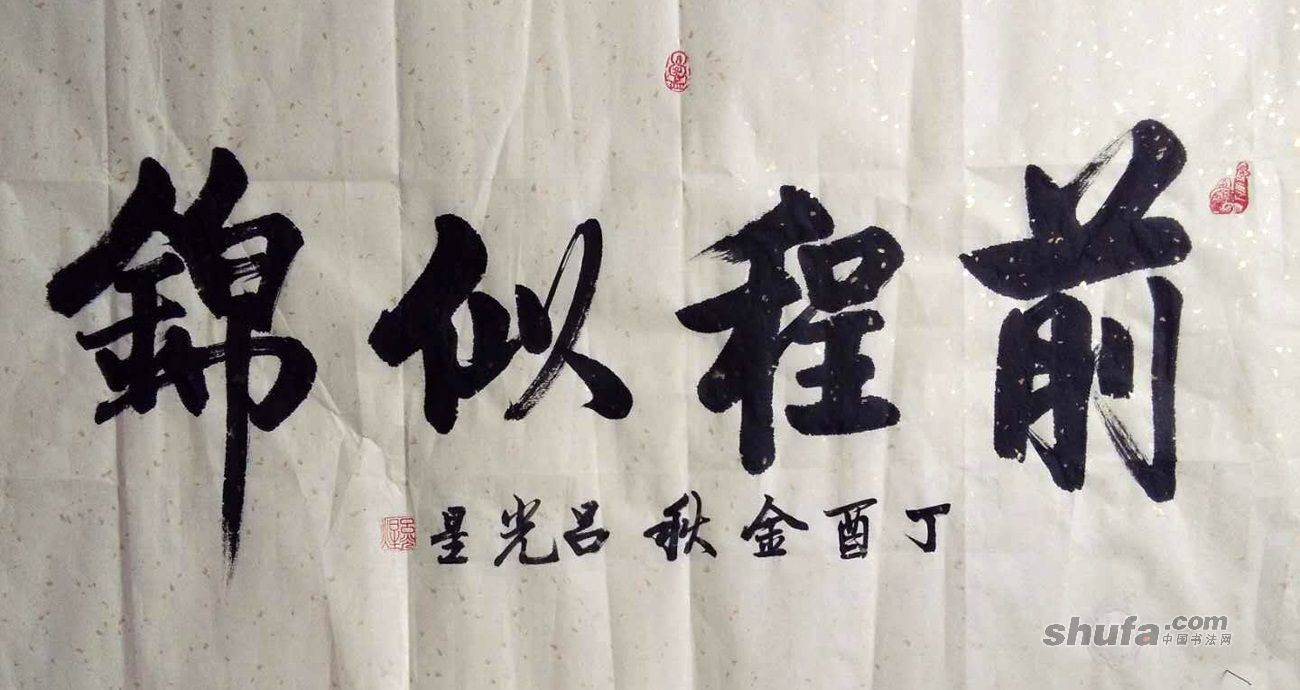 前程似錦
丁酉金秋吕光星
shufa.com
中国书法网